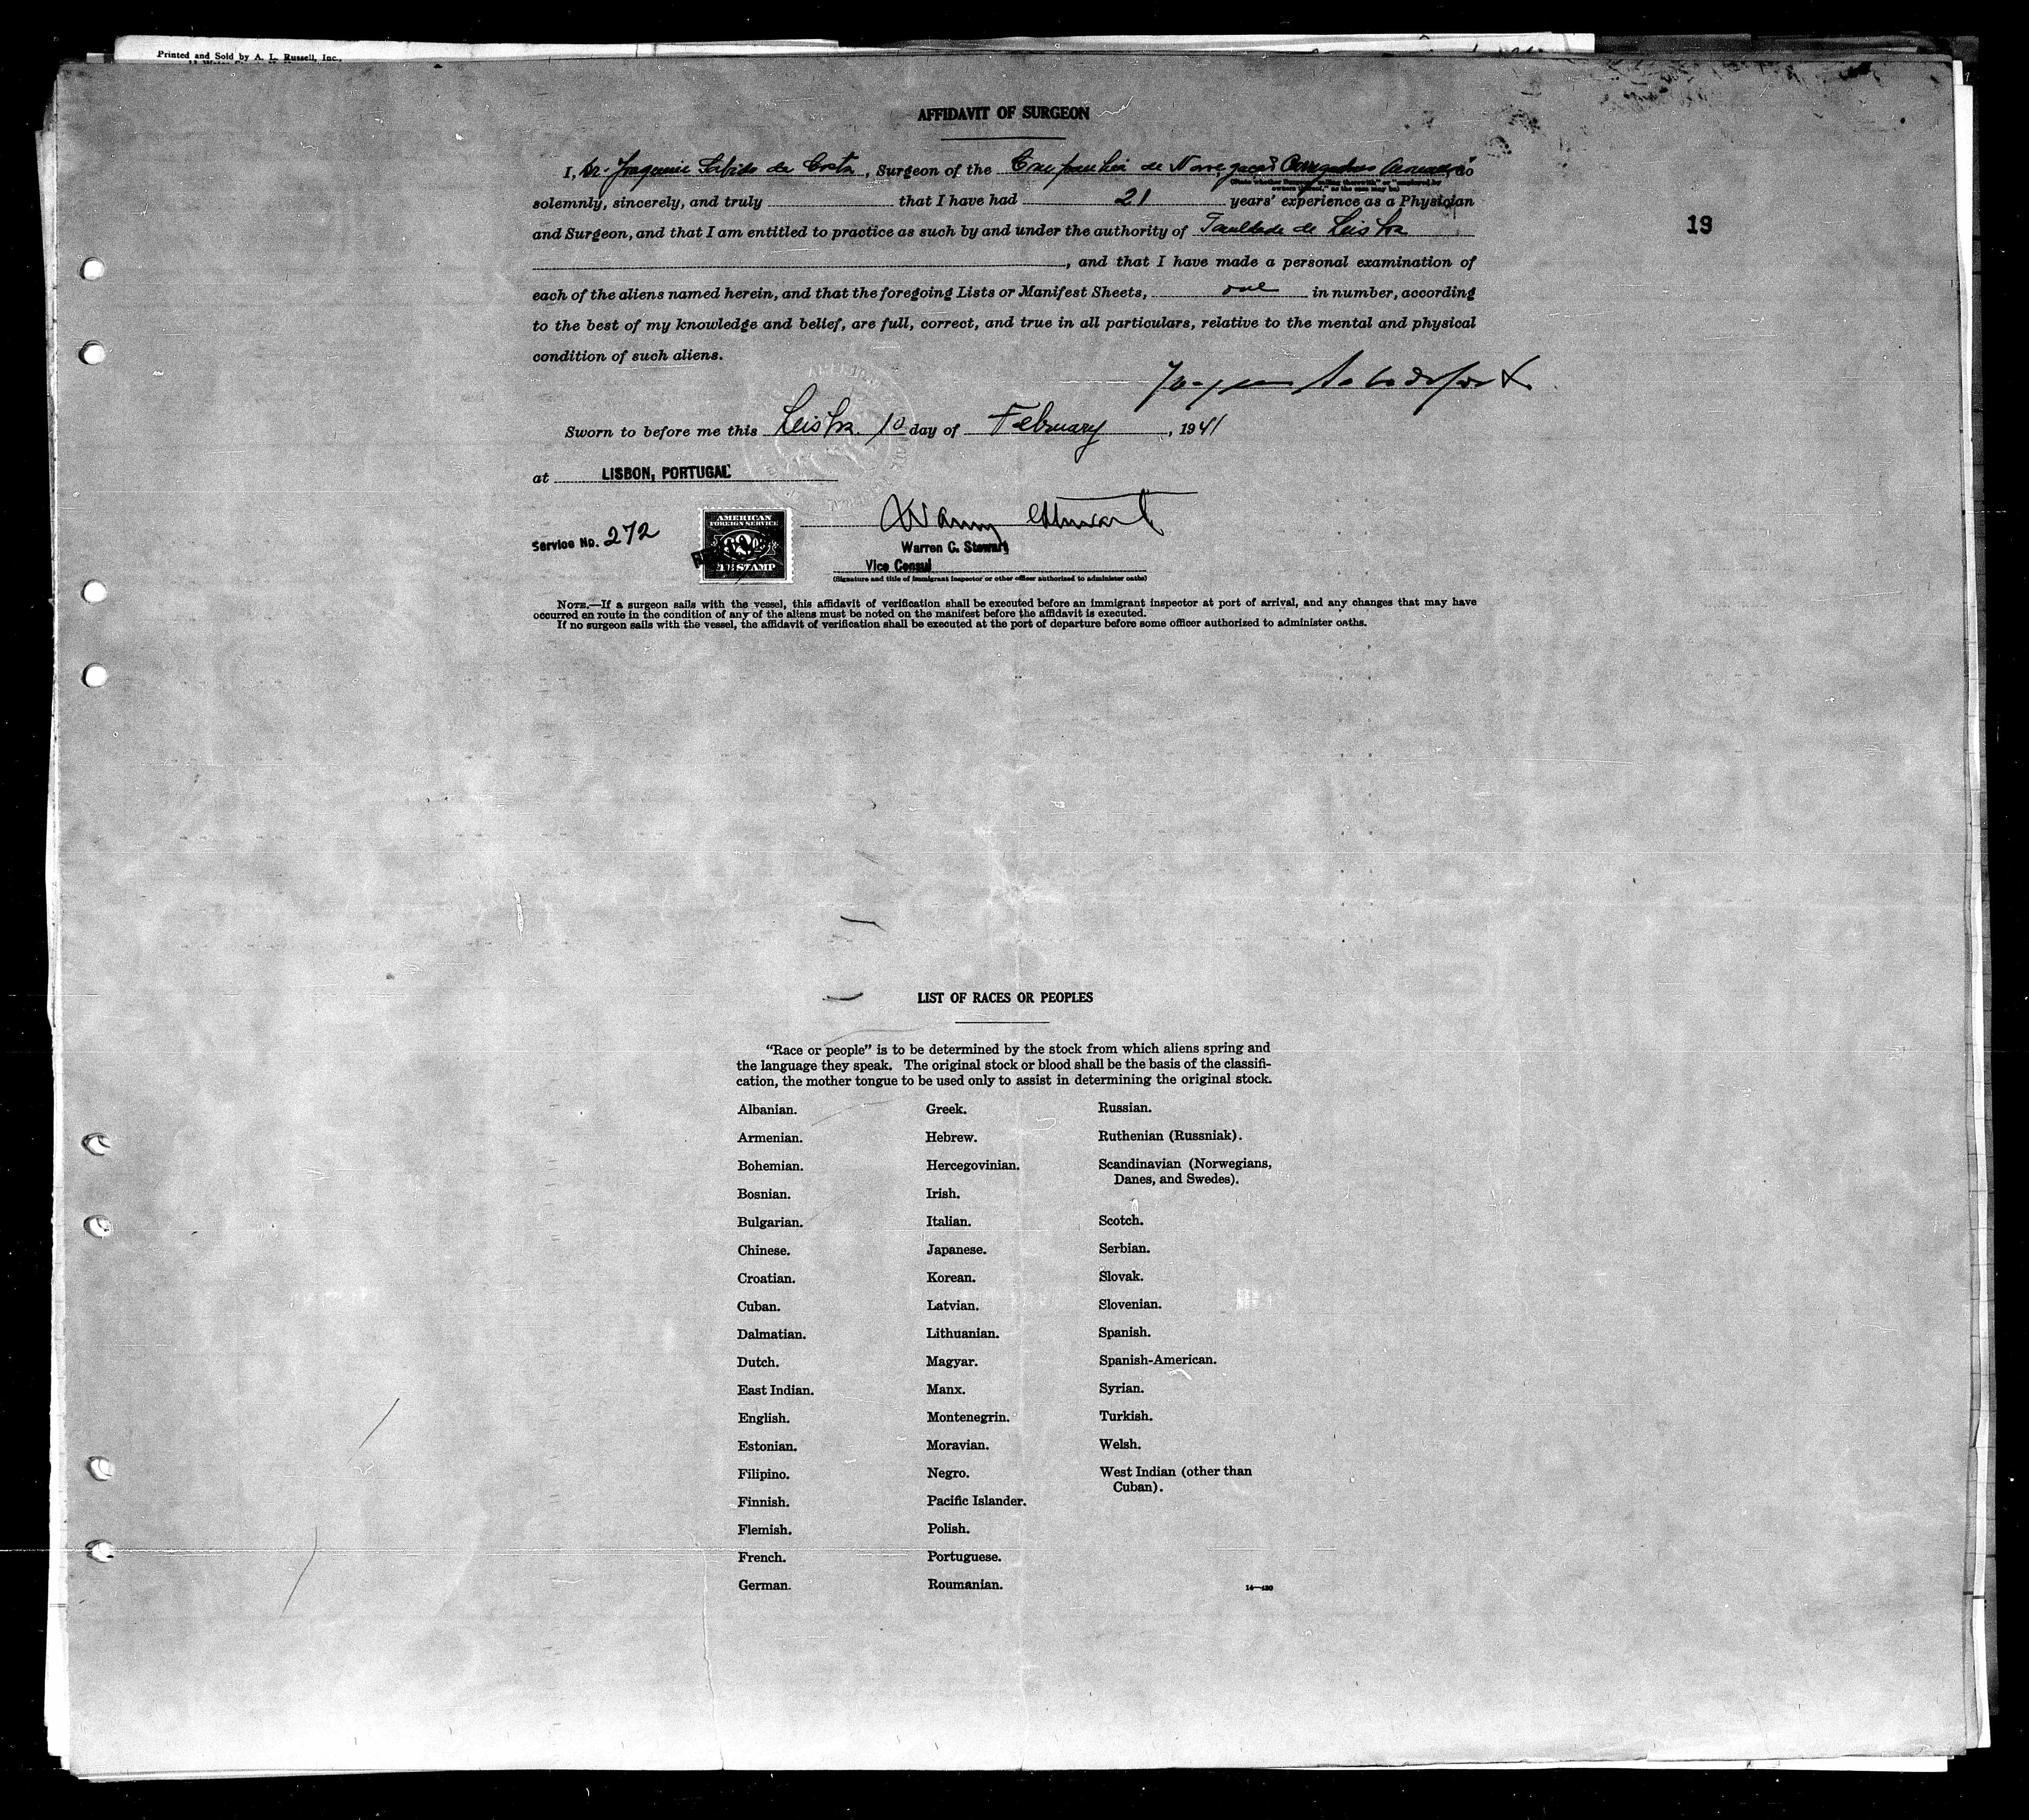 Printed and Sold by A. L. Russell, Inc.,
AFFIDAVIT OF SURGEON
I, Dr. Joaquim Sabido da Costa, Surgeon of the Companhia de Navegação Carregadores do
solemnly, sincerely, and truly that I have had 21 years' experience as a Physician
and Surgeon, and that I am entitled to practice as such by and under the authority of Faculdade de Lisboa
19
, and that I have made a personal examination of
each of the aliens named herein, and that the foregoing Lists or Manifest Sheets, one in number, according
to the best of my knowledge and belief, are full, correct, and true in all particulars, relative to the mental and physical
condition of such aliens.
Sworn to before me this Lisboa 10 day of February, 1941
at LISBON, PORTUGAL
AMERICAN
FOREIGN SERVICE
STAMP
Service No. 272
Warren C. Stewart
Vice Consul
(Signature and title of immigrant inspector or other officer authorized to administer oaths)
NOTE.—If a surgeon sails with the vessel, this affidavit of verification shall be executed before an immigrant inspector at port of arrival, and any changes that may have
occurred en route in the condition of any of the aliens must be noted on the manifest before the affidavit is executed.
If no surgeon sails with the vessel, the affidavit of verification shall be executed at the port of departure before some officer authorized to administer oaths.
LIST OF RACES OR PEOPLES
"Race or people" is to be determined by the stock from which aliens spring and
the language they speak. The original stock or blood shall be the basis of the classifi-
cation, the mother tongue to be used only to assist in determining the original stock.
Albanian.
Armenian.
Bohemian.
Bosnian.
Bulgarian.
Chinese.
Croatian.
Cuban.
Dalmatian.
Dutch.
East Indian.
English.
Estonian.
Filipino.
Finnish.
Flemish.
French.
German.
Greek.
Hebrew.
Hercegovinian.
Irish.
Italian.
Japanese.
Korean.
Latvian.
Lithuanian.
Magyar.
Manx.
Montenegrin.
Moravian.
Negro.
Pacific Islander.
Polish.
Portuguese.
Roumanian.
Russian.
Ruthenian (Russniak).
Scandinavian (Norwegians,
Danes, and Swedes).
Scotch.
Serbian.
Slovak.
Slovenian.
Spanish.
Spanish-American.
Syrian.
Turkish.
Welsh.
West Indian (other than
Cuban).
14—430